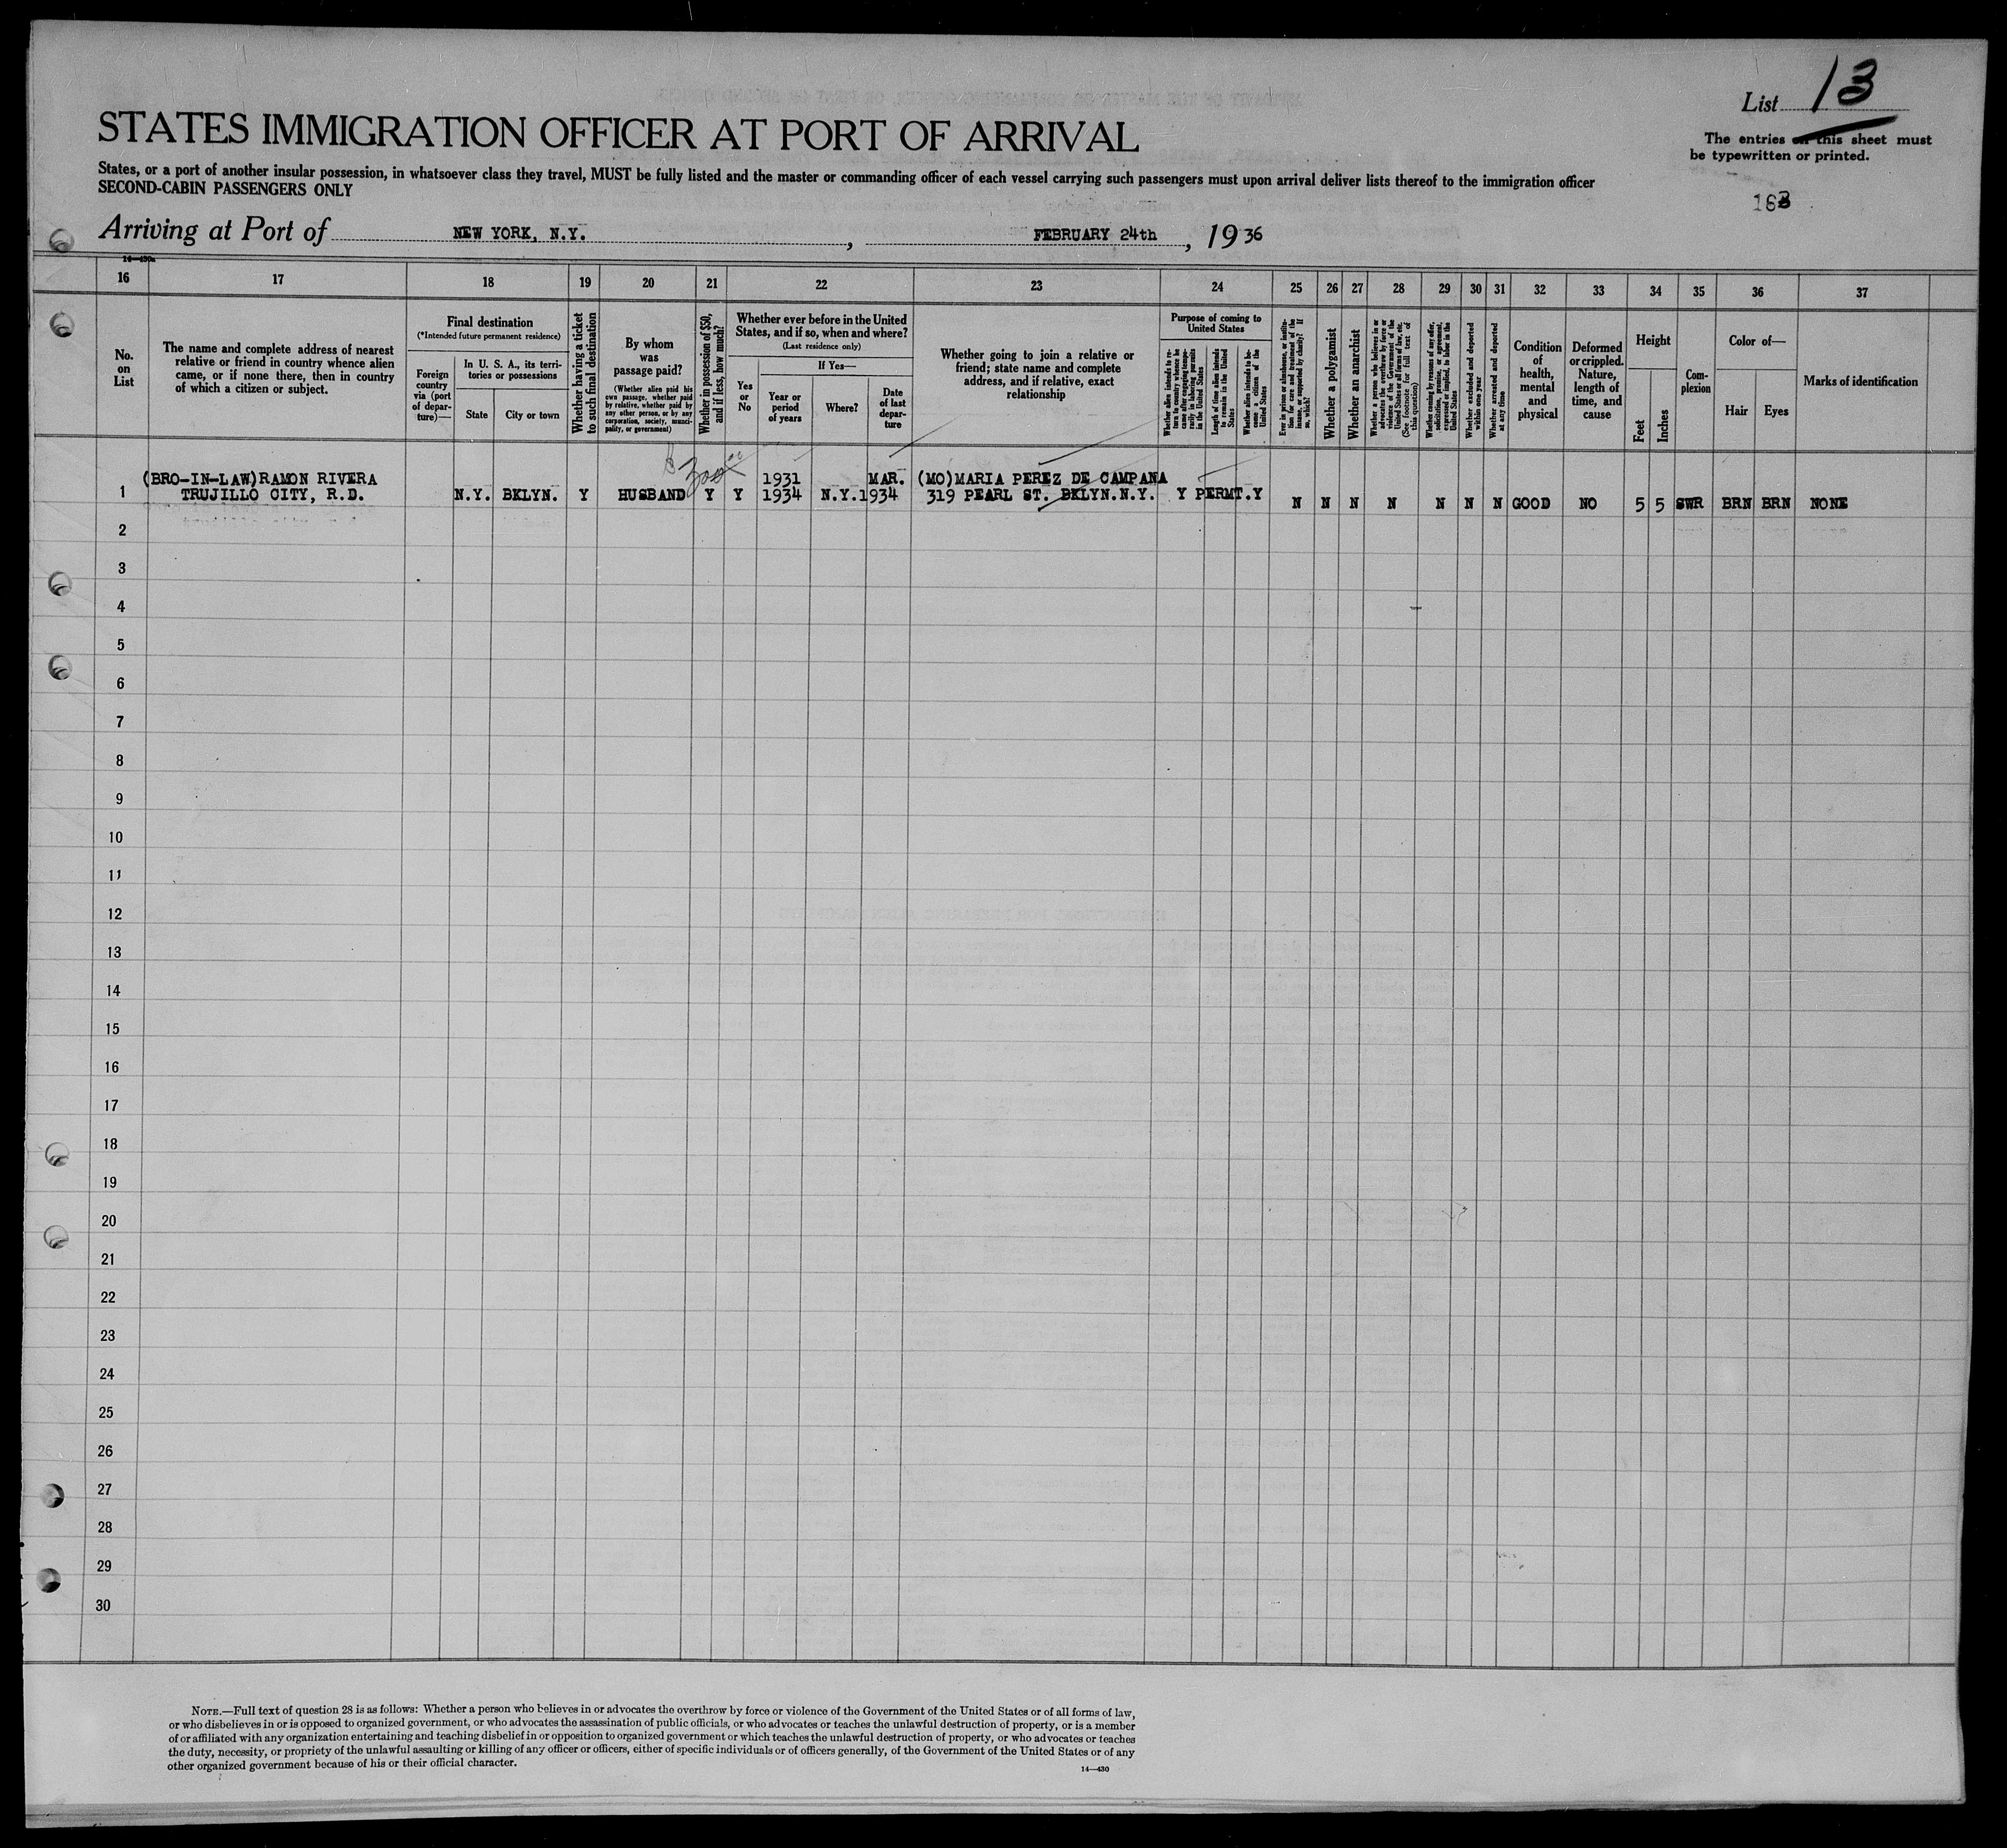 List 13
STATES IMMIGRATION OFFICER AT PORT OF ARRIVAL
The entries on this sheet must
be typewritten or printed.
States, or a port of another insular possession, in whatsoever class they travel, MUST be fully listed and the master or commanding officer of each vessel carrying such passengers must upon arrival deliver lists thereof to the immigration officer
SECOND-CABIN PASSENGERS ONLY
Arriving at Port of NEW YORK, N.Y. , FEBRUARY 24th , 19 36
16 17 18 19 20 21 22 23 24 25 26 27 28 29 30 31 32 33 34 35 36 37
No.
on
List
The name and complete address of nearest
relative or friend in country whence alien
came, or if none there, then in country
of which a citizen or subject.
Final destination
(*Intended future permanent residence)
Foreign
country
via (port
of depar-
ture)—
In U. S. A., its terri-
tories or possessions
State
City or town
Whether having a ticket
to such final destination
By whom
was
passage paid?
(Whether alien paid his
own passage, whether paid
by relative, whether paid by
any other person, or by any
corporation, society, munici-
pality, or government)
Whether in possession of $50,
and if less, how much?
Whether ever before in the United
States, and if so, when and where?
(Last residence only)
Yes
or
No
If Yes—
Year or
period
of years
Where?
Date
of last
depar-
ture
Whether going to join a relative or
friend; state name and complete
address, and if relative, exact
relationship
Purpose of coming to
United States
Whether alien intends to re-
turn to country whence he
came after engaging tempo-
rarily in laboring pursuits
in the United States
Length of time alien intends
to remain in the United
States
Whether alien intends to be-
come a citizen of the
United States
Ever in prison or almshouse, or institu-
tion for care and treatment of the
insane, or supported by charity? If
so, which?
Whether a polygamist
Whether an anarchist
Whether a person who believes in or
advocates the overthrow by force or
violence of the Government of the
United States or all forms of law, etc.
(See footnote for full text of
this question)
Whether coming by reason of any offer,
solicitation, promise, or agreement,
expressed or implied, to labor in the
United States
Whether excluded and deported
within one year
Whether arrested and deported
at any time
Condition
of
health,
mental
and
physical
Deformed
or crippled.
Nature,
length of
time, and
cause
Height
Feet
Inches
Com-
plexion
Color of—
Hair
Eyes
Marks of identification
(BRO-IN-LAW)RAMON RIVERA $ 300 00 1931 MAR. (MO)MARIA PEREZ DE CAMPANA
1 TRUJILLO CITY, R.D. N.Y. BKLYN. Y HUSBAND Y Y 1934 N.Y. 1934 319 PEARL ST. BKLYN.N.Y. Y PERMT. Y N N N N N N N GOOD NO 5 5 SWR BRN BRN NONE
2
3
4
5
6
7
8
9
10
11
12
13
14
15
16
17
18
19
20
21
22
23
24
25
26
27
28
29
30
NOTE.—Full text of question 28 is as follows: Whether a person who believes in or advocates the overthrow by force or violence of the Government of the United States or of all forms of law,
or who disbelieves in or is opposed to organized government, or who advocates the assassination of public officials, or who advocates or teaches the unlawful destruction of property, or is a member
of or affiliated with any organization entertaining and teaching disbelief in or opposition to organized government or which teaches the unlawful destruction of property, or who advocates or teaches
the duty, necessity, or propriety of the unlawful assaulting or killing of any officer or officers, either of specific individuals or of officers generally, of the Government of the United States or of any
other organized government because of his or their official character.
14—430